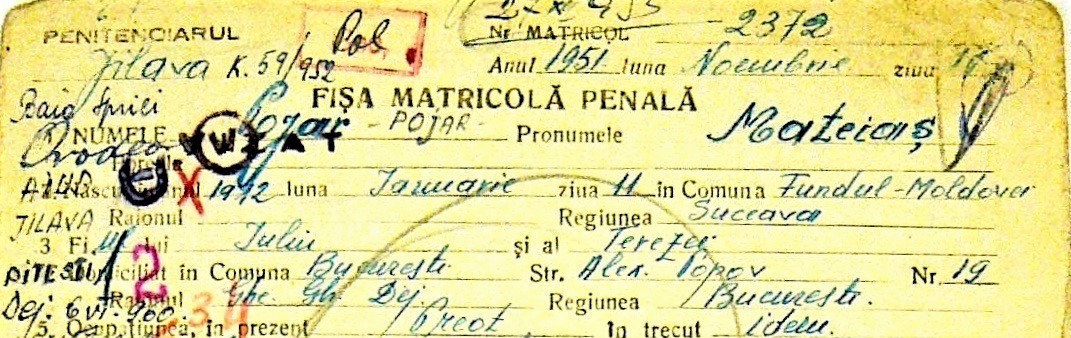 27 X 953
PENITENCIARUL Nr MATRICOL 2372
Jilava K. 59/952 Pob. Anul 1951 luna Noembrie ziua
Baia Sprii FIȘA MATRICOLĂ PENALĂ
1 NUMELE Pojar - POJAR - Pronumele Mateiaș
Născut anul 1912 luna Ianuarie ziua 11 în Comuna Fundul-Moldovei
JILAVA Raionul Regiunea Suceava
3 Fiul lui Iuliu și al Terezei
PITEȘTI Domiciliat în Comuna București Str. Alex. Popov Nr. 19
Dej: 6 VI. 960. Raionul Ghe. Gh. Dej Regiunea București.
2
34
5. Ocupațiunea, în prezent Preot în trecut idem.